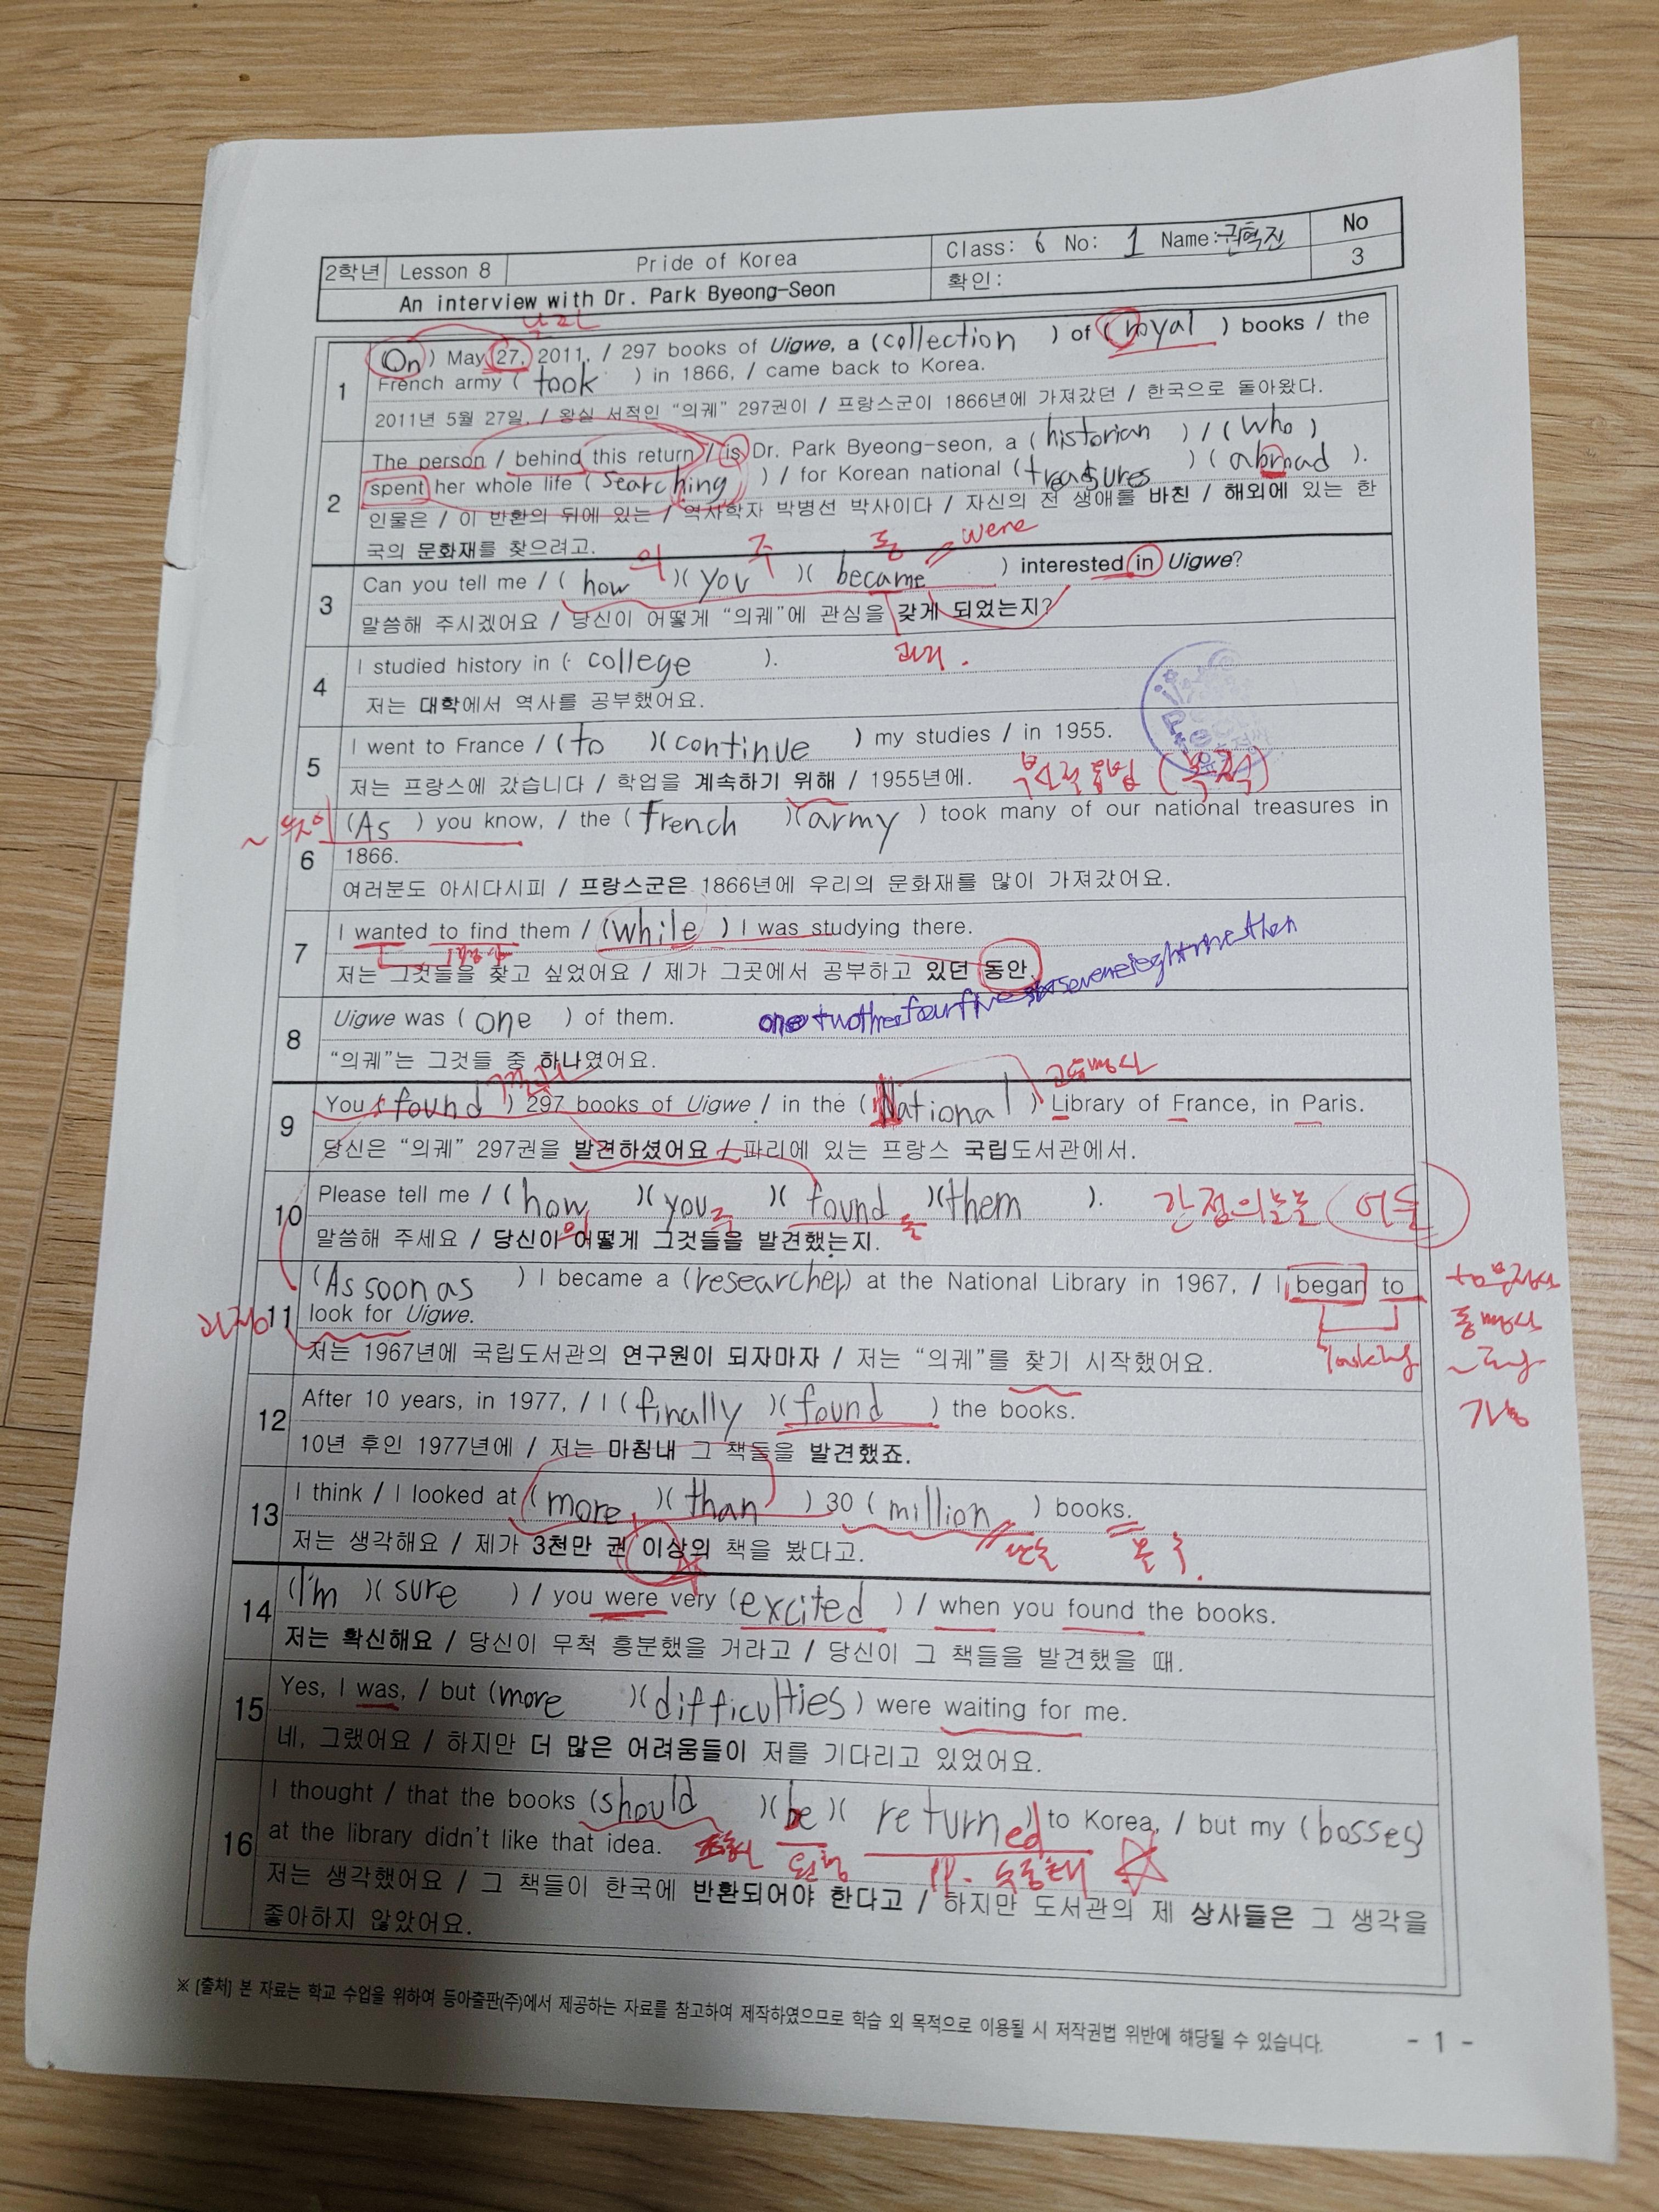 2학년 Lesson 8 Pride of Korea Class: 6 No: 1 Name: 권혁진 No
An interview with Dr. Park Byeong-Seon 확인: 3
날짜
1 (On) May 27, 2011, / 297 books of Uigwe, a (collection) of (royal) books / the
French army (took) in 1866, / came back to Korea.
2011년 5월 27일, / 왕실 서적인 “의궤” 297권이 / 프랑스군이 1866년에 가져갔던 / 한국으로 돌아왔다.
2 The person / behind this return / is Dr. Park Byeong-seon, a (historian) / (who)
spent her whole life (searching) / for Korean national (treasures) (abroad).
인물은 / 이 반환의 뒤에 있는 / 역사학자 박병선 박사이다 / 자신의 전 생애를 바친 / 해외에 있는 한
국의 문화재를 찾으려고.
의 주 동 were
3 Can you tell me / (how)(you)(became) interested in Uigwe?
말씀해 주시겠어요 / 당신이 어떻게 “의궤”에 관심을 갖게 되었는지?
과거.
4 I studied history in (college).
저는 대학에서 역사를 공부했어요.
5 I went to France / (to)(continue) my studies / in 1955.
저는 프랑스에 갔습니다 / 학업을 계속하기 위해 / 1955년에. 부사적용법 (목적)
6 (As) you know, / the (french)(army) took many of our national treasures in
1866.
여러분도 아시다시피 / 프랑스군은 1866년에 우리의 문화재를 많이 가져갔어요.
7 I wanted to find them / (while) I was studying there.
저는 그것들을 찾고 싶었어요 / 제가 그곳에서 공부하고 있던 동안.
8 Uigwe was (one) of them.
“의궤”는 그것들 중 하나였어요.
9 You (found) 297 books of Uigwe / in the (National) Library of France, in Paris.
고유명사
당신은 “의궤” 297권을 발견하셨어요 / 파리에 있는 프랑스 국립도서관에서.
10 Please tell me / (how)(you)(found)(them). 간접의문문 (어순)
의 주 동
말씀해 주세요 / 당신이 어떻게 그것들을 발견했는지.
11 (As soon as) I became a (researcher) at the National Library in 1967, / I began to
look for Uigwe.
저는 1967년에 국립도서관의 연구원이 되자마자 / 저는 “의궤”를 찾기 시작했어요. looking
to부정사
동명사
가능
12 After 10 years, in 1977, / I (finally)(found) the books.
10년 후인 1977년에 / 저는 마침내 그 책들을 발견했죠.
13 I think / I looked at (more)(than) 30 (million) books.
저는 생각해요 / 제가 3천만 권 이상의 책을 봤다고. 단수 복수
14 (I'm)(sure) / you were very (excited) / when you found the books.
저는 확신해요 / 당신이 무척 흥분했을 거라고 / 당신이 그 책들을 발견했을 때.
15 Yes, I was, / but (more)(difficulties) were waiting for me.
네, 그랬어요 / 하지만 더 많은 어려움들이 저를 기다리고 있었어요.
16 I thought / that the books (should)(be)(returned) to Korea, / but my (bosses)
at the library didn't like that idea. 조동사 원형 수동태
저는 생각했어요 / 그 책들이 한국에 반환되어야 한다고 / 하지만 도서관의 제 상사들은 그 생각을
좋아하지 않았어요.
※ [출처] 본 자료는 학교 수업을 위하여 동아출판(주)에서 제공하는 자료를 참고하여 제작하였으므로 학습 외 목적으로 이용될 시 저작권법 위반에 해당될 수 있습니다.
- 1 -